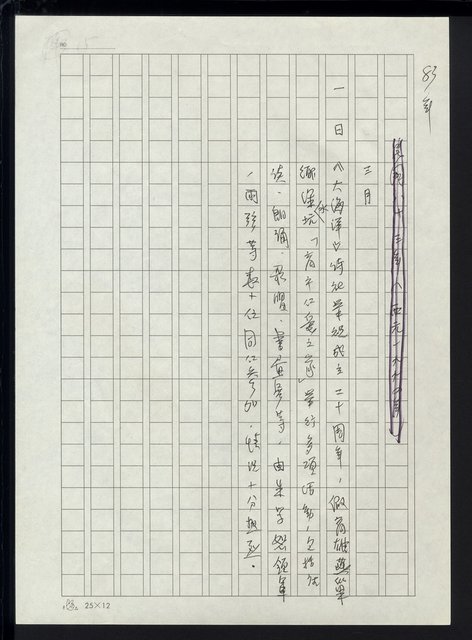 83年
民國八十三年(西元一九九四年)
三月
一日 《大海洋》詩社舉組成立二十周年,假高雄燕巢
深水坑「育年仁愛之家」舉行多項活動,包括
朗誦、歌唱、書畫展等,由朱學恕領軍
、雨 等數十位同仁參加,情況十分熱烈。
25×12